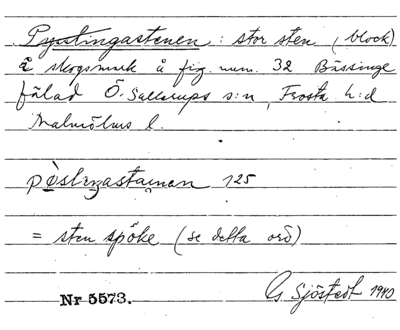 Pystingastenen : stor sten (block)
å skogsmark å fig. num. 32 Bässinge
fälad Ö. Sallerups s:n, Frosta h:d
Malmöhus l.
125
= sten spöke (se detta ord)
G. Sjöstedt 1940
Nr 5573.